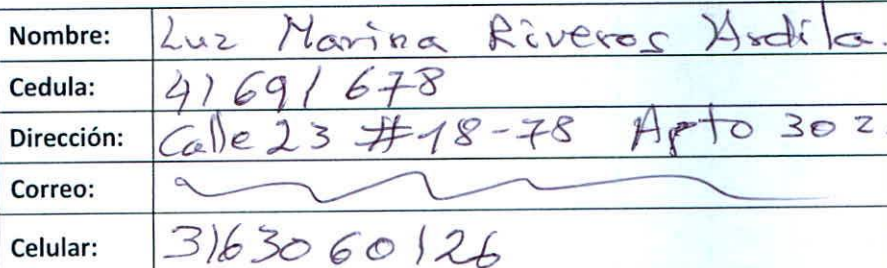 Nombre: Luz Marina Riveros Ardila.
Cedula: 41691678
Dirección: Calle 23 #18-78 Apto 302
Correo:
Celular: 3163060126